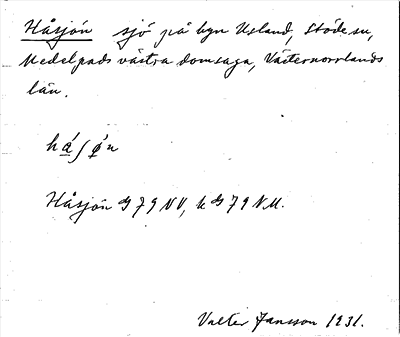 Håsjön sjö på byn Usland, Stöde sn,
Medelpads västra domsaga, Västernorrlands
län.
há̱ʃǿ̱n
Håsjön G 79 NV, k G 79 NV.
Valter Jansson 1931.